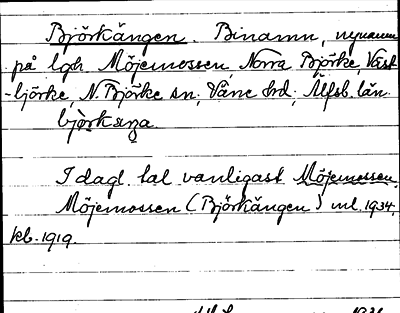 Björkängen. Binamn, nynamn
på lgh. Möjemossen, Norra Björke, Väst-
-björke, N. Björke sn, Väne hd, Älfsb. län.
I dagl. tal vanligast Möjemossen.
Möjemossen (Björkängen) ml. 1934,
kb. 1919.